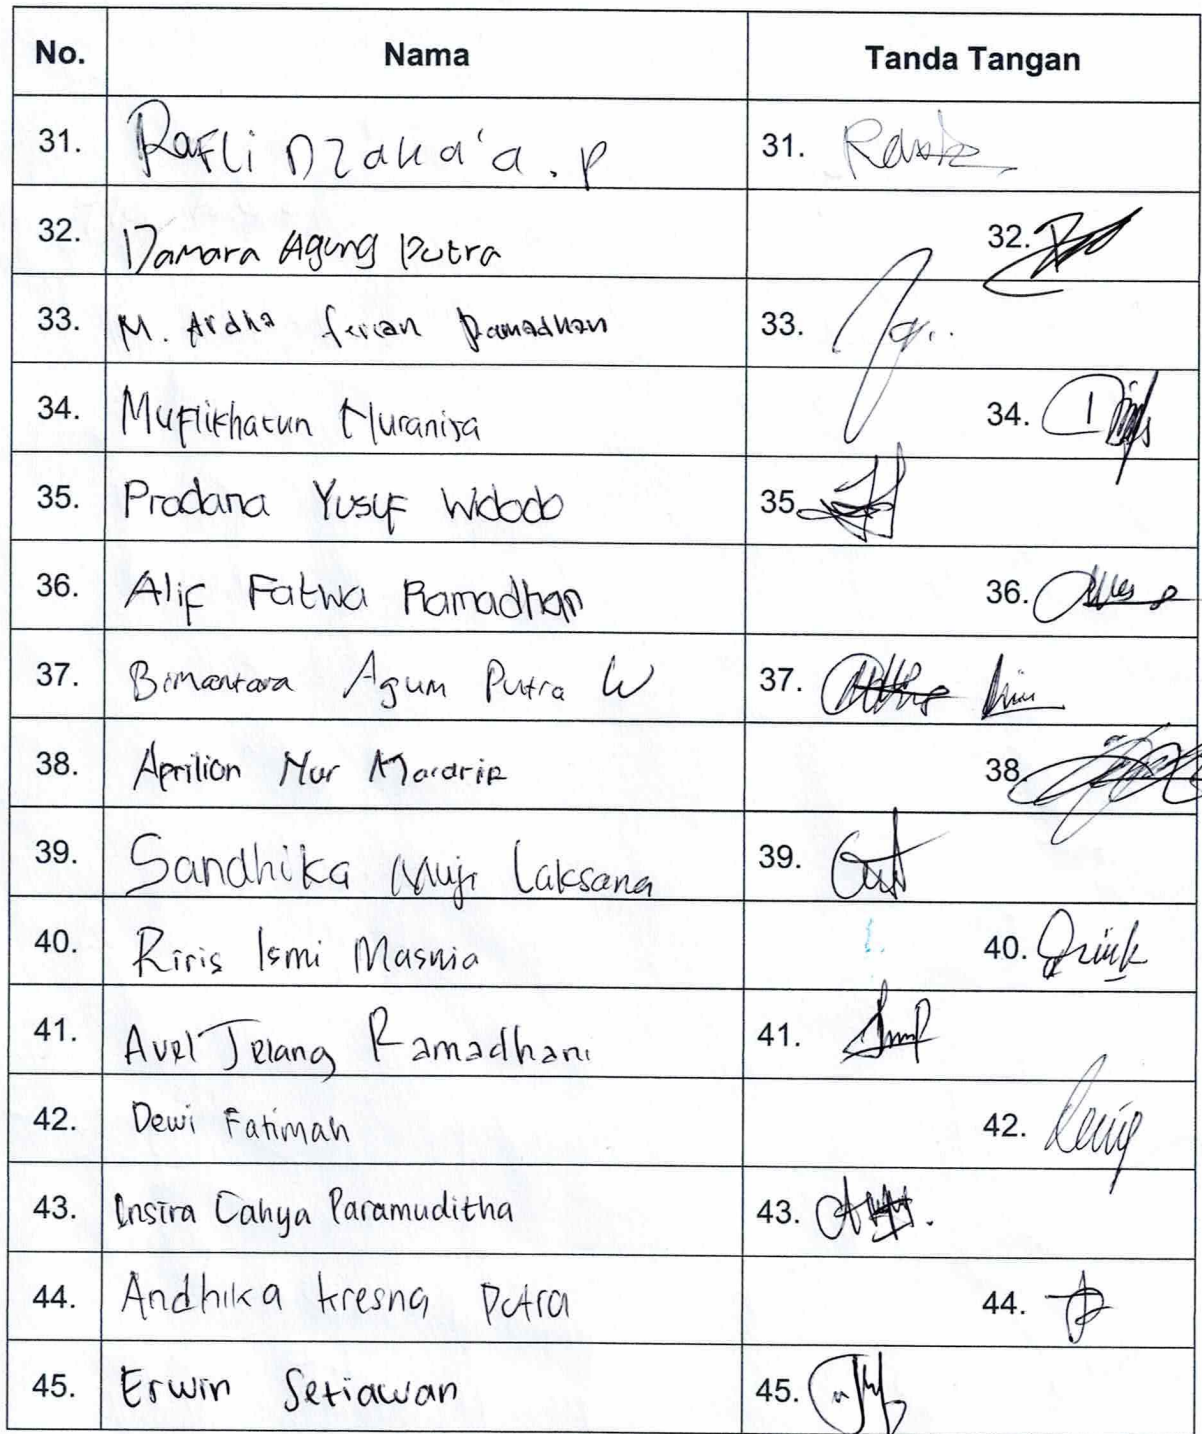 No. Nama Tanda Tangan
31. Rafli Dzaka'a. P 31.
32. Damara Agung Putra 32.
33. M. Ardha Ramadhan 33.
34. Muflikhatun Nuranisa 34.
35. Pradana Yusuf Widodo 35.
36. Alif Fatwa Ramadhan 36.
37. Bimantara Agum Putra W 37.
38. Aprilion Nur 38.
39. Sandhika Muji Laksana 39.
40. Riris Ismi Masnia 40.
41. Avel Jelang Ramadhani 41.
42. Dewi Fatimah 42.
43. Cahya Paramuditha 43.
44. Andhika Kresna Putra 44.
45. Erwin Setiawan 45.